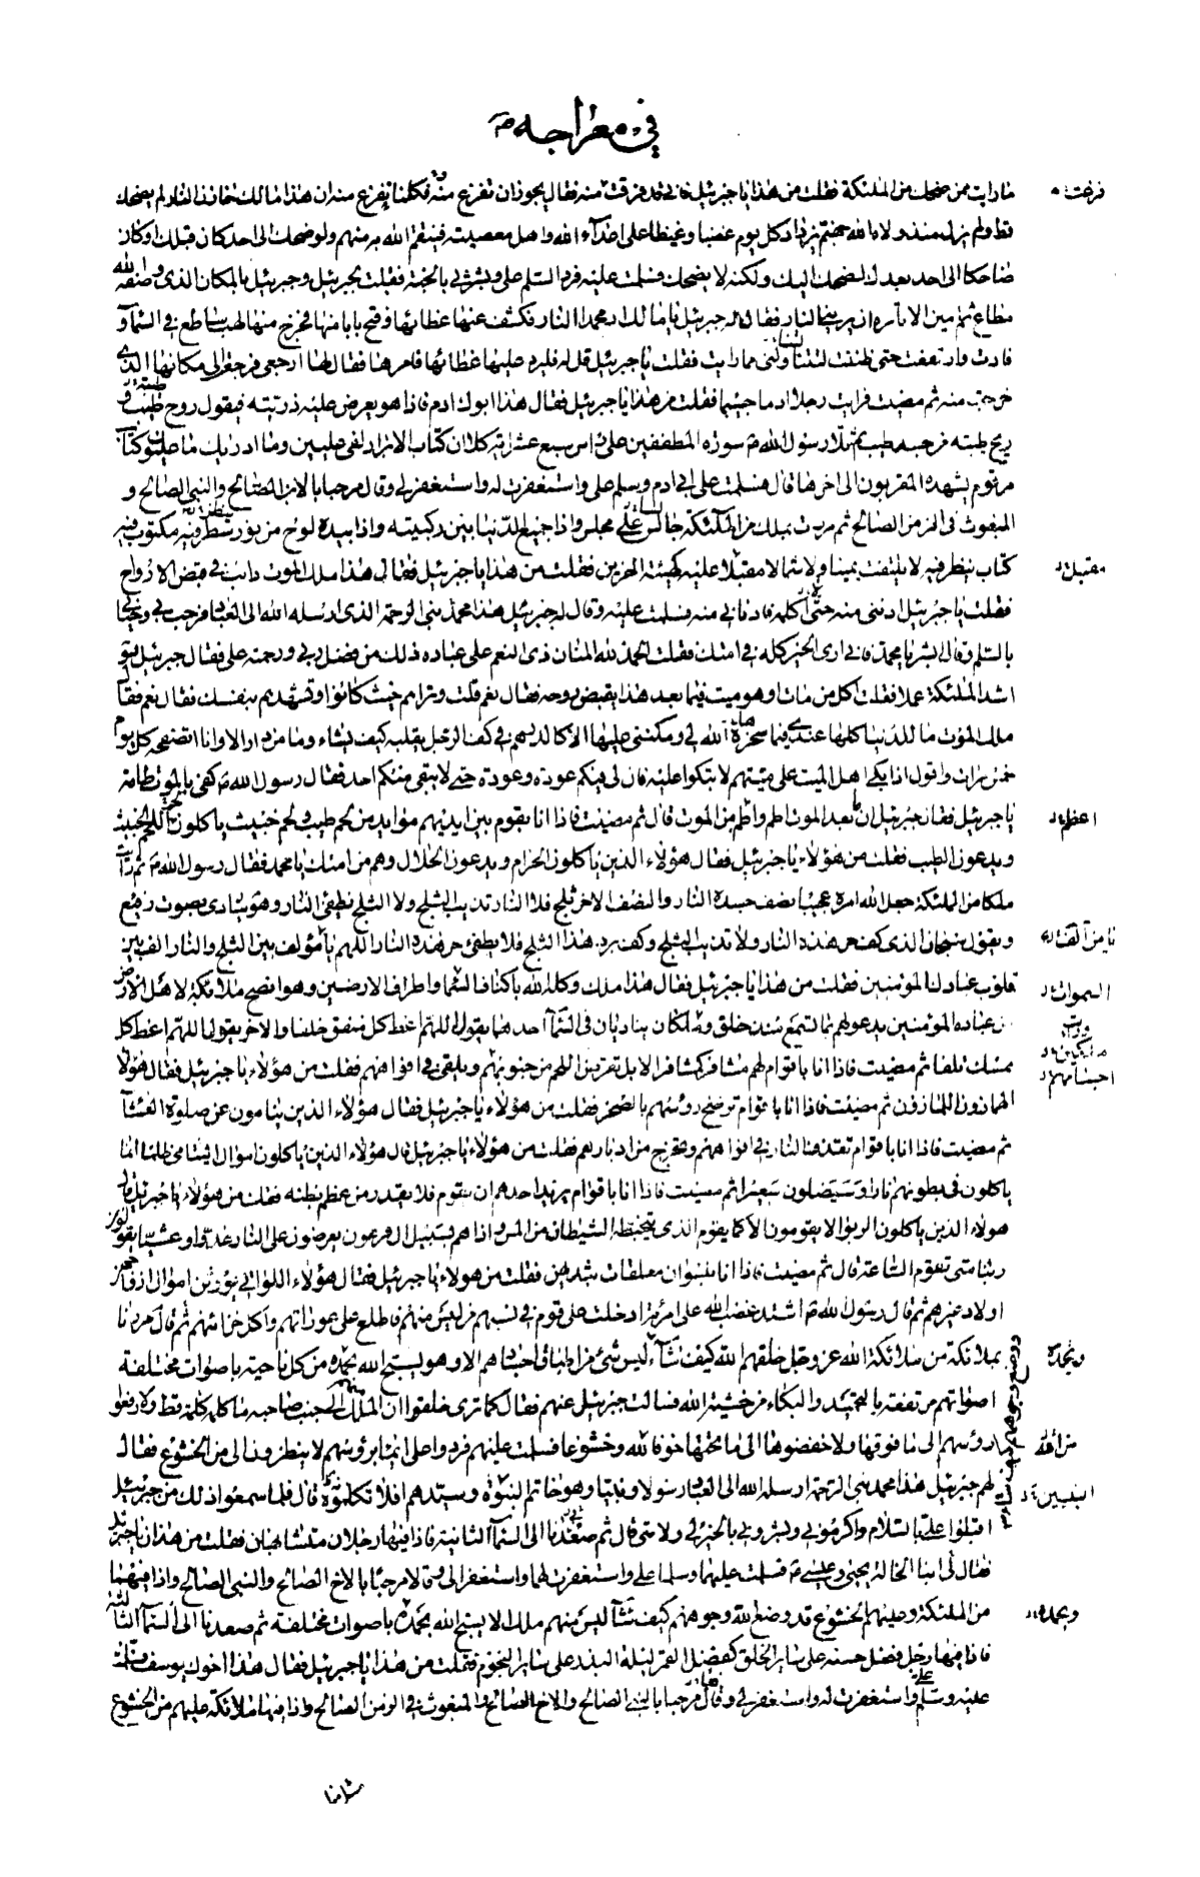 في معراجه ص
ما رايت ممن ضحك من الملئكة فقلت من هذا يا جبرئيل فاني قد فزعت منه فقال يجوز ان تفزع منه فكلنا يفزع منه ان هذا مالك خازن النار لم يضحك
قط ولم يزل منذ ولاه الله جهنم يزداد كل يوم غضبا وغيظا على اعداء الله واهل معصيته فينتقم الله به منهم ولو ضحك الى احد كان قبلك او كان
ضاحكا الى احد بعدك لضحك اليك ولكنه لا يضحك فسلمت عليه فرد السلم على وبشرني بالجنة فقلت لجبرئيل وجبرئيل بالمكان الذى وصفه الله
مطاع ثم امين الا تامره ان يرينى النار فقال له جبرئيل يا مالك ار محمدا النار فكشف عنها غطائها وفتح بابا منها فخرج منها لهب ساطع في السماء و
فارت وارتفعت حتى ظننت ليتناولنى مما رايت فقلت يا جبرئيل قل له فليرد عليها غطائها فامرها فقال لها ارجعى فرجعت الى مكانها الذى
خرجت منه ثم مضيت فرايت رجلا ادما جسيما فقلت من هذا يا جبرئيل فقال هذا ابوك ادم فاذا هو يعرض عليه ذريته فيقول روح طيب و
ريح طيبة من جسد طيب ثم تلا رسول الله ص سورة المطففين على راس سبع عشر اية كلا ان كتاب الابرار لفى عليين وما ادريك ما عليون كتاب
مرقوم يشهده المقربون الى اخرها قال فسلمت على ابى ادم وسلم على واستغفرت له واستغفر لى وقال مرحبا بالابن الصالح والنبى الصالح و
المبعوث فى الزمن الصالح ثم مررت بملك من الملئكة جالس على مجلس واذا جميع الدنيا بين ركبتيه واذا بيده لوح من نور سطر فيه مكتوب فيه
كتاب ينظر فيه لا يلتفت يمينا ولا شمالا مقبلا عليه كهيئة الحزين فقلت من هذا يا جبرئيل فقال هذا ملك الموت دائب فى قبض الارواح
فقلت يا جبرئيل ادننى منه حتى اكلمه فادنانى منه فسلمت عليه وقال له جبرئيل هذا محمد نبى الرحمة الذى ارسله الله الى العباد فرحب بى وحيانى
بالسلم وقال ابشر يا محمد فانى ارى الخير كله فى امتك فقلت الحمد لله المنان ذى النعم على عباده ذلك من فضل ربى ورحمته على فقال جبرئيل هو
اشد الملئكة عملا فقلت اكل من مات او هو ميت فيما بعد هذا يقبض روحه فقال نعم قلت وتراهم حيث كانوا وتشهدهم بنفسك فقال نعم فقال
ملك الموت ما الدنيا كلها عندى فيما سخرها الله لى ومكننى عليها الا كالدرهم فى كف الرجل يقلبه كيف يشاء وما من دار الا وانا اتصفحه كل يوم
خمس مرات واقول اذا بكى اهل الميت على ميتهم لا تبكوا عليه فان لى فيكم عودة وعودة حتى لا يبقى منكم احد فقال رسول الله ص كفى بالموت طامة
يا جبرئيل فقال جبرئيل ان ما بعد الموت اطم واطم من الموت قال ثم مضيت فاذا انا بقوم بين ايديهم موائد من لحم طيب ولحم خبيث ياكلون اللحم الخبيث
ويدعون الطيب فقلت من هؤلاء يا جبرئيل فقال هؤلاء الذين ياكلون الحرام ويدعون الحلال وهم من امتك يا محمد فقال رسول الله ص ثم رايت
ملكا من الملئكة جعل الله امره عجيبا نصف جسده النار والنصف الاخر ثلج فلا النار تذيب الثلج ولا الثلج تطفئ النار وهو ينادى بصوت رفيع
ويقول سبحان الذى كف حر هذه النار ولا تذيب الثلج وكف برد هذا الثلج فلا يطفئ حر هذه النار اللهم يا مؤلف بين الثلج والنار الف بين
قلوب عبادك المؤمنين فقلت من هذا يا جبرئيل فقال هذا ملك وكله الله باكناف السماء واطراف الارضين وهو انصح ملائكة لاهل الارض
من عباده المؤمنين يدعو لهم بما تسمع منذ خلق وملكان يناديان فى السماء احدهما يقول اللهم اعط كل منفق خلفا والاخر يقول اللهم اعط كل
ممسك تلفا ثم مضيت فاذا انا باقوام لهم مشافر كمشافر الابل تقرض اللحم من جنوبهم ويلقى فى افواههم فقلت من هؤلاء يا جبرئيل فقال هؤلاء
الهمازون اللمازون ثم مضيت فاذا انا باقوام ترضخ رؤسهم بالصخر فقلت من هؤلاء يا جبرئيل فقال هؤلاء الذين ينامون عن صلوة العشاء
ثم مضيت فاذا انا باقوام تقذف النار فى افواههم وتخرج من ادبارهم فقلت من هؤلاء يا جبرئيل قال هؤلاء الذين ياكلون اموال اليتامى ظلما انما
ياكلون فى بطونهم نارا وسيصلون سعيرا ثم مضيت فاذا انا باقوام يريد احدهم ان يقوم فلا يقدر من عظم بطنه فقلت من هؤلاء يا جبرئيل قال
هؤلاء الذين ياكلون الربوا لا يقومون الا كما يقوم الذى يتخبطه الشيطان من المس واذا هم بسبيل ال فرعون يعرضون على النار غدوا وعشيا يقولون
ربنا متى تقوم الساعة قال ثم مضيت فاذا انا بنسوان معلقات بثديهن فقلت من هؤلاء يا جبرئيل فقال هؤلاء اللواتى يورثن اموال ازواجهن
اولاد غيرهم ثم قال رسول الله ص اشتد غضب الله على امرئة ادخلت على قوم فى نسبهم من ليس منهم فاطلع على عوراتهم واكل خزائنهم ثم قال مررنا
بملائكة من ملائكة الله عز وجل خلقهم الله كيف شاء ليس شئ من اطباق اجسادهم الا وهو يسبح الله بحمده من كل ناحية باصوات مختلفة
اصواتهم مرتفعة بالتحميد والبكاء من خشية الله فسالت جبرئيل عنهم فقال كما ترى خلقوا ان الملك منهم الى جنب صاحبه ما كلمه كلمة قط ولا رفعوا
رؤسهم الى ما فوقها ولا خفضوها الى ما تحتها خوفا لله وخشوعا فسلمت عليهم فردوا على ايماء برؤسهم لا ينظرون الى من الخشوع فقال
لهم جبرئيل هذا محمد نبى الرحمة ارسله الله الى العباد رسولا ونبيا وهو خاتم النبوة وسيدهم افلا تكلمونه قال فلما سمعوا ذلك من جبرئيل
اقبلوا على بالسلام واكرمونى وبشرونى بالخير لى ولامتى قال ثم صعدنا الى السماء الثانية فاذا فيها رجلان متشابهان فقلت من هذان يا جبرئيل
فقال لى ابنا الخالة يحيى وعيسى ع فسلمت عليهما وسلما على واستغفرت لهما واستغفرا لى وقالا مرحبا بالاخ الصالح والنبى الصالح واذا فيها
من الملئكة وعليهم الخشوع قد وضع الله وجوههم كيف شاء ليس منهم ملك الا يسبح الله بحمده باصوات مختلفة ثم صعدنا الى السماء الثالثة
فاذا فيها رجل فضل حسنه على سائر الخلق كفضل القمر ليلة البدر على سائر النجوم فقلت من هذا يا جبرئيل فقال هذا اخوك يوسف فسلمت
عليه وسلم على واستغفرت له واستغفر لى وقال مرحبا بالنبى الصالح والاخ الصالح والمبعوث فى الزمن الصالح واذا فيها ملائكة عليهم من الخشوع
فزعت
مقبلا
اعظم
يا من الف
السموات
ملكين
اجسامهم
وبحمده
من الله
النبيين
وبحمده